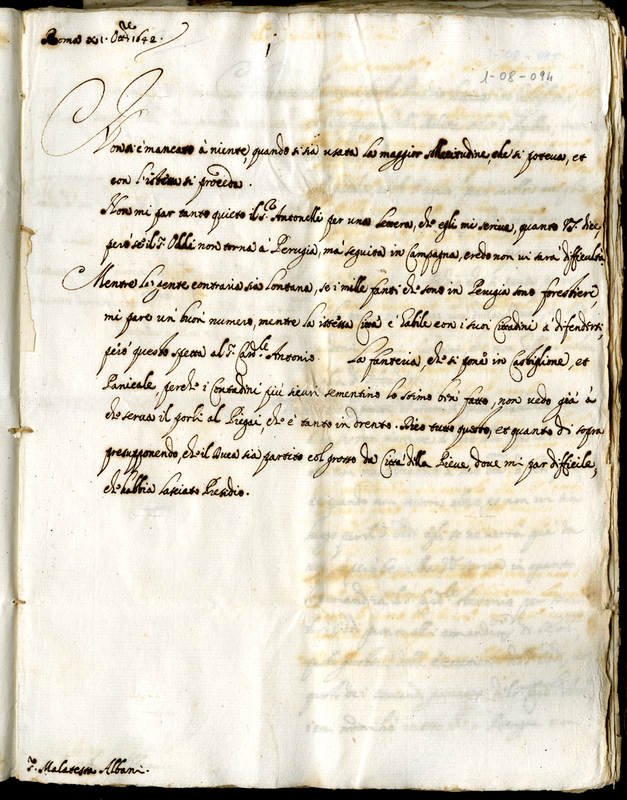 Roma xi. Ott.re 1642.
1
1-08-094
Non si è mancato à niente, quando si sia usata la maggior sollecitudine, che si poteva, et
con l'istessa si proceda.
Non mi par tanto quieto il S.r Antonelli per una lettera, che egli mi scrive, quanto V.S. dice
però se il S.r Oddi non torna a' Perugia, mà seguita in Campagna, credo non vi sarà difficultà.
Mentre la gente contraria sia lontana, se i mille fanti che sono in Perugia sono forestieri
mi pare un buon numero, mentre la istessa Città è habile con i suoi Cittadini a difendersi,
però questo spetta al S.r Card.le Antonio. La fanteria, che si pone in Castiglione, et
Panicale, perche i Contadini più sicuri sementino lo stimo ben fatto, non vedo già à
che serva il porli al Piegai, che è tanto in drento. Dico tutto questo, et quanto di sopra
presupponendo, che il Duca sia partito col grosso da Città della Pieve, dove mi par difficile,
che habbia lasciato Presidio.
S.r Malatesta Albani.